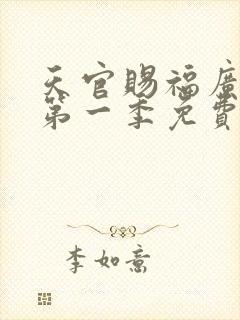 天官賜福廣
第一季免費
李如意